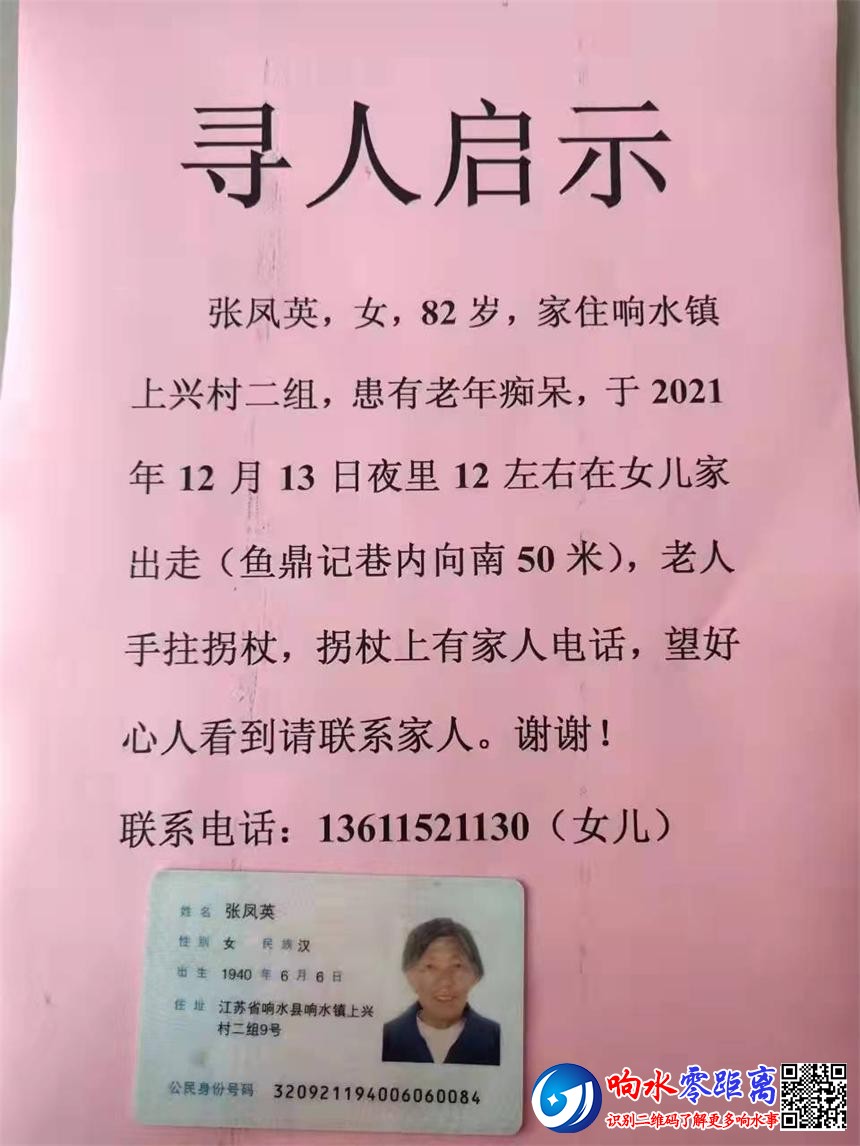 寻人启示
张凤英，女，82岁，家住响水镇
上兴村二组，患有老年痴呆，于2021
年12月13日夜里12左右在女儿家
出走（鱼鼎记巷内向南50米），老人
手拄拐杖，拐杖上有家人电话，望好
心人看到请联系家人。谢谢！
联系电话：13611521130（女儿）
姓名 张凤英
性别 女 民族 汉
出生 1940年6月6日
住址 江苏省响水县响水镇上兴
村二组9号
公民身份号码 320921194006060084
响水零距离
识别二维码了解更多响水事